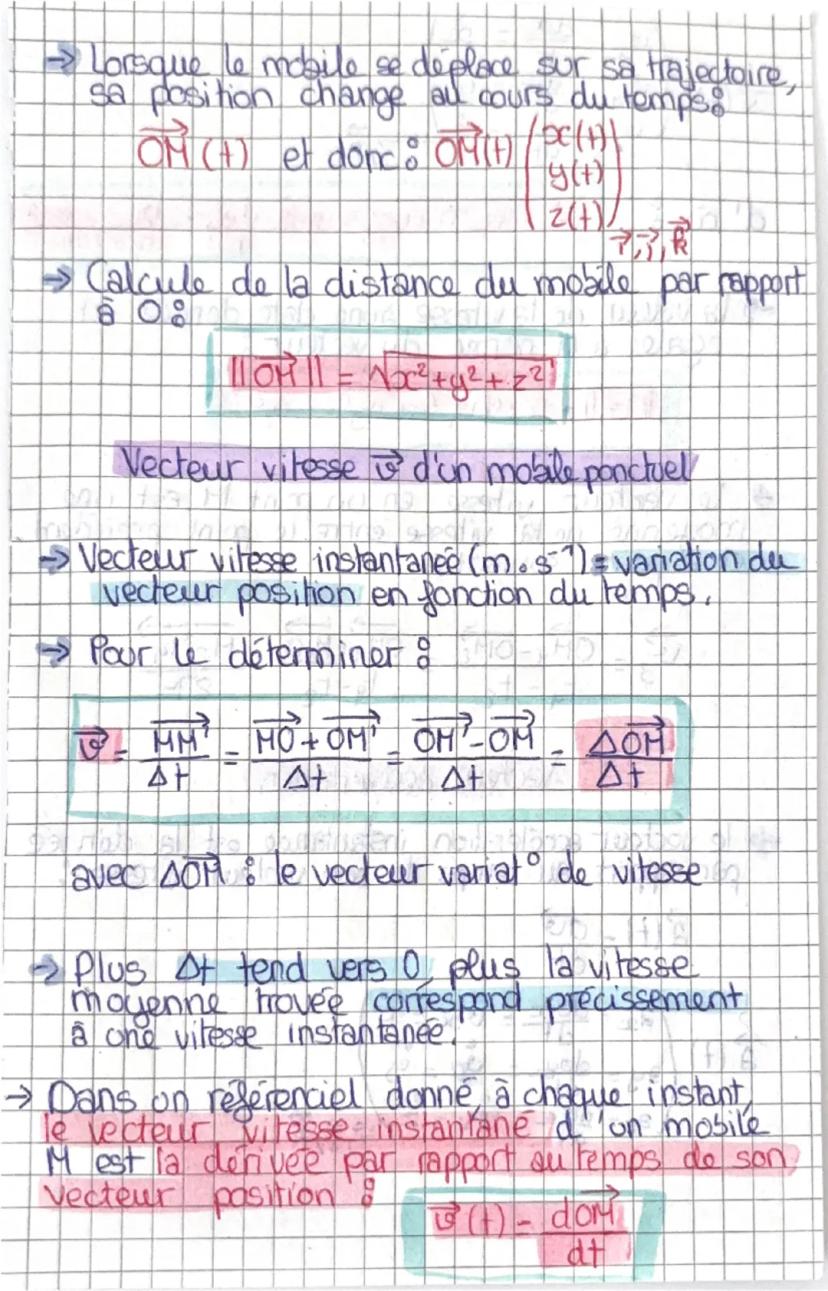 → Lorsque le mobile se déplace sur sa trajectoire,
sa position change au cours du temps :
OM⃗(t) et donc : OM⃗(t) (x(t)
y(t)
z(t)) i⃗, j⃗, k⃗
→ Calcule de la distance du mobile par rapport
à O :
||OM⃗|| = √x²+y²+z²
Vecteur vitesse v⃗ d'un mobile ponctuel
→ Vecteur vitesse instantanée (m.s⁻¹) = variation du
vecteur position en fonction du temps.
→ Pour le déterminer :
v⃗ = MM'⃗/Δt = (MO⃗ + OM'⃗)/Δt = (OM'⃗ - OM⃗)/Δt = ΔOM⃗/Δt
avec ΔOM⃗ : le vecteur variat° de vitesse
→ Plus Δt tend vers 0, plus la vitesse
moyenne trovée correspond précissement
à une vitesse instantanée.
→ Dans un référenciel donné, à chaque instant,
le vecteur vitesse instantané d'un mobile
M est la dérivée par rapport au temps de son
vecteur position :
v⃗(t) = dOM⃗/dt